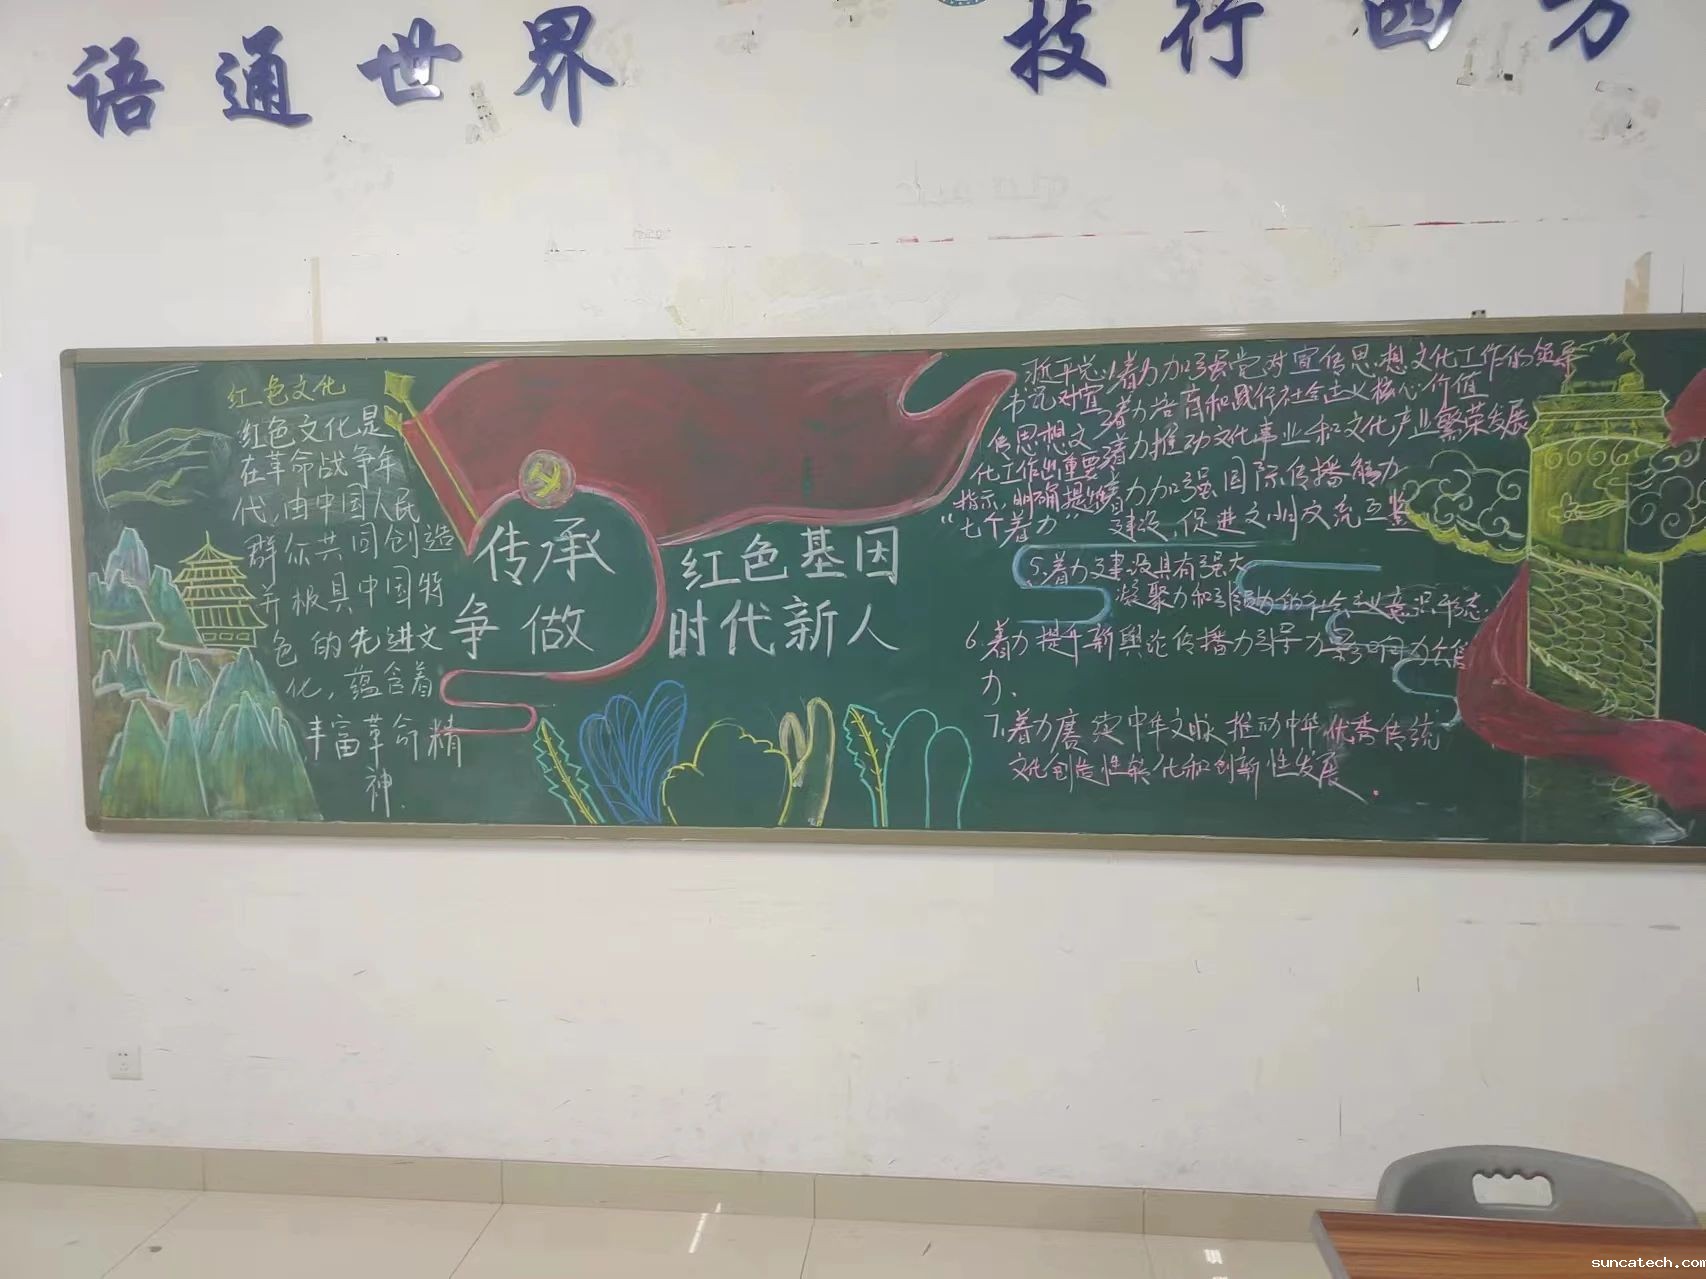 语通世界
技行四方
红色文化
红色文化是
在革命战争年
代,由中国人民
群众共同创造
并极具中国特
色的先进文
化,蕴含着
丰富革命精
神.
传承 红色基因
争做 时代新人
1着力加强党对宣传思想文化工作的领导
书记对宣
着力培育和践行社会主义核心价值
传思想文
着力推动文化事业和文化产业繁荣发展
化工作
重要
指示,明确提
着力加强国际传播能力
“七个着力”
建设,促进文明交流互鉴
5.着力建设具有强大
凝聚力和引领力的社会主义意识形态
6.着力提升新闻舆论传播力引导力影响力公信
力、
7.着力赓续中华文脉、推动中华优秀传统
文化创造性转化和创新性发展.
suncatech.com